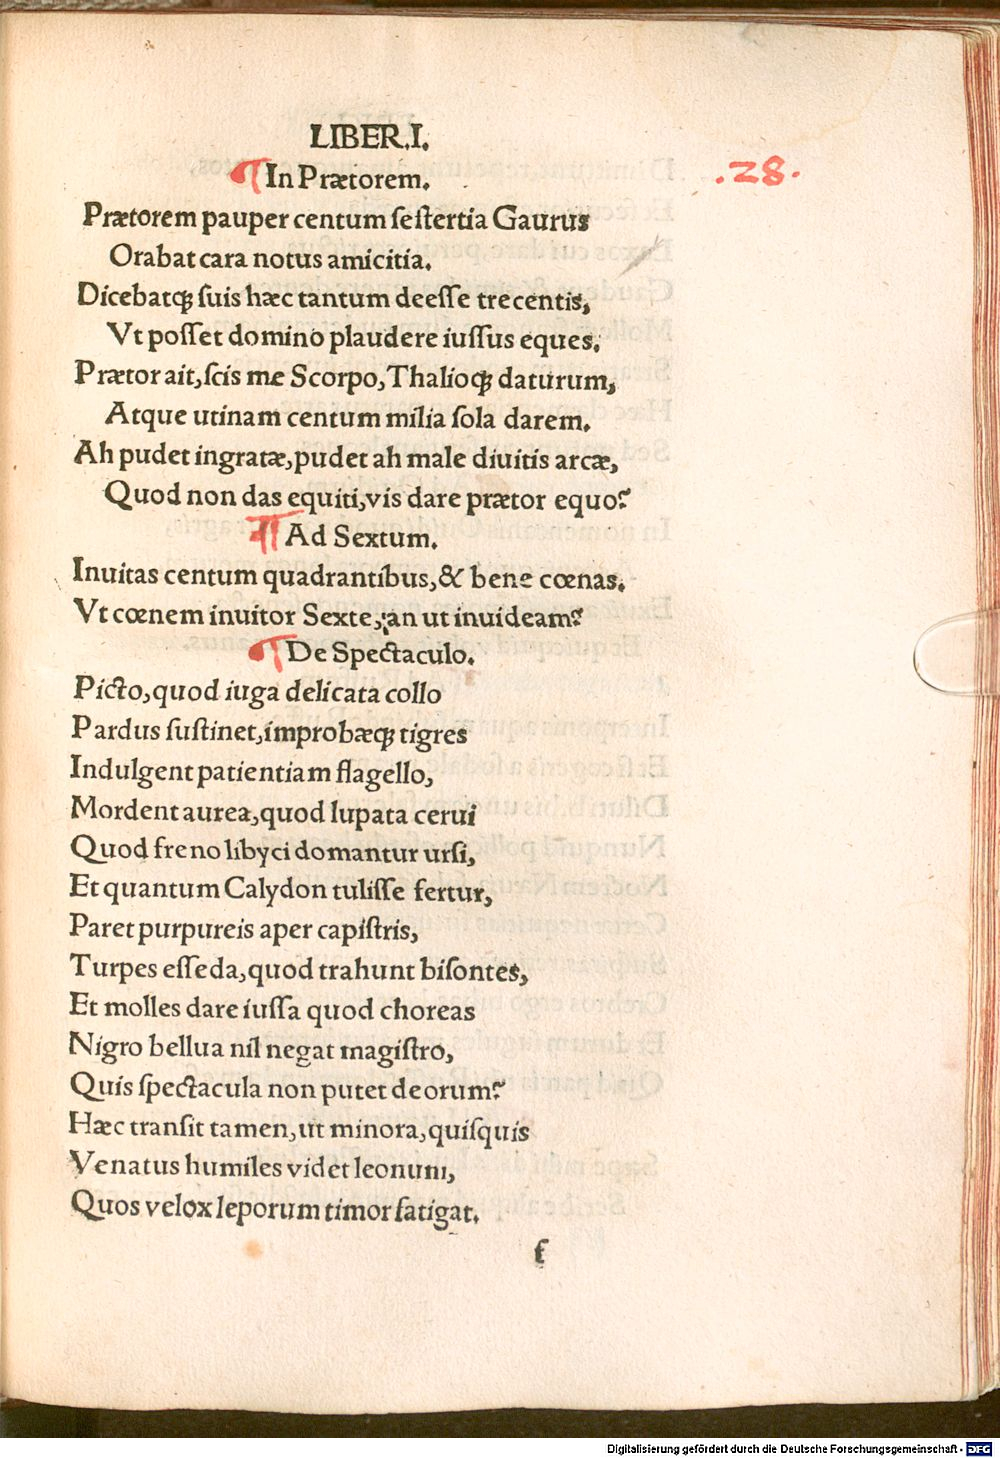 LIBER.I.
¶ In Prætorem.
.28.
Prætorem pauper centum ſeſtertia Gaurus
Orabat cara notus amicitia.
Dicebatqꝫ ſuis hæc tantum deeſſe trecentis,
Vt poſſet domino plaudere iuſſus eques.
Prætor ait, ſcis me Scorpo, Thalioqꝫ daturum,
Atque utinam centum milia ſola darem.
Ah pudet ingratæ, pudet ah male diuitis arcæ,
Quod non das equiti, vis dare prætor equo?
¶ Ad Sextum.
Inuitas centum quadrantibus, & bene cœnas.
Vt cœnem inuitor Sexte, an ut inuideam?
¶ De Spectaculo.
Picto, quod iuga delicata collo
Pardus ſuſtinet, improbæqꝫ tigres
Indulgent patientiam flagello,
Mordent aurea, quod lupata cerui
Quod freno libyci domantur urſi,
Et quantum Calydon tuliſſe fertur,
Paret purpureis aper capiſtris,
Turpes eſſeda, quod trahunt biſontes,
Et molles dare iuſſa quod choreas
Nigro bellua nil negat magiſtro,
Quis ſpectacula non putet deorum?
Hæc tranſit tamen, ut minora, quiſquis
Venatus humiles videt leonum,
Quos velox leporum timor fatigat.
f
Digitalisierung gefördert durch die Deutsche Forschungsgemeinschaft - DFG